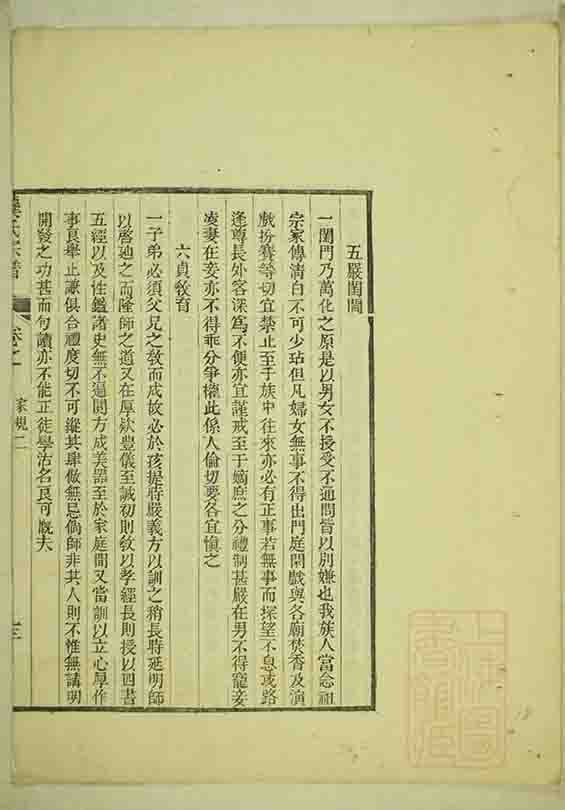 五嚴閨閫
一閨門乃萬化之原是以男女不授受不通問皆以別嫌也我族人當念祖
宗家傳清白不可少玷但凡婦女無事不得出門庭閑戲與各廟焚香及演
戲扮賽等切宜禁止至于族中往來亦必有正事若無事而探望不息或路
逢尊長外客深爲不便亦宜謹戒至于嫡庶之分禮制甚嚴在男不得寵妾
凌妻在妾亦不得乖分爭權此係人倫切要各宜慎之
六貞敎育
一子弟必須父兄之敎而成故必於孩提時嚴義方以訓之稍長時延明師
以啓廸之而隆師之道又在厚欵豐儀至誠初則敎以孝經長則授以四書
五經以及性鑑諸史無不遍閱方成美器至於家庭間又當訓以立心厚作
事良舉止謙俱合禮度切不可縱其肆傲無忌倘師非其人則不惟無講明
開發之功甚而句讀亦不能正徒學沽名良可慨夫
氏宗譜
卷之
家規二
上海圖書館藏